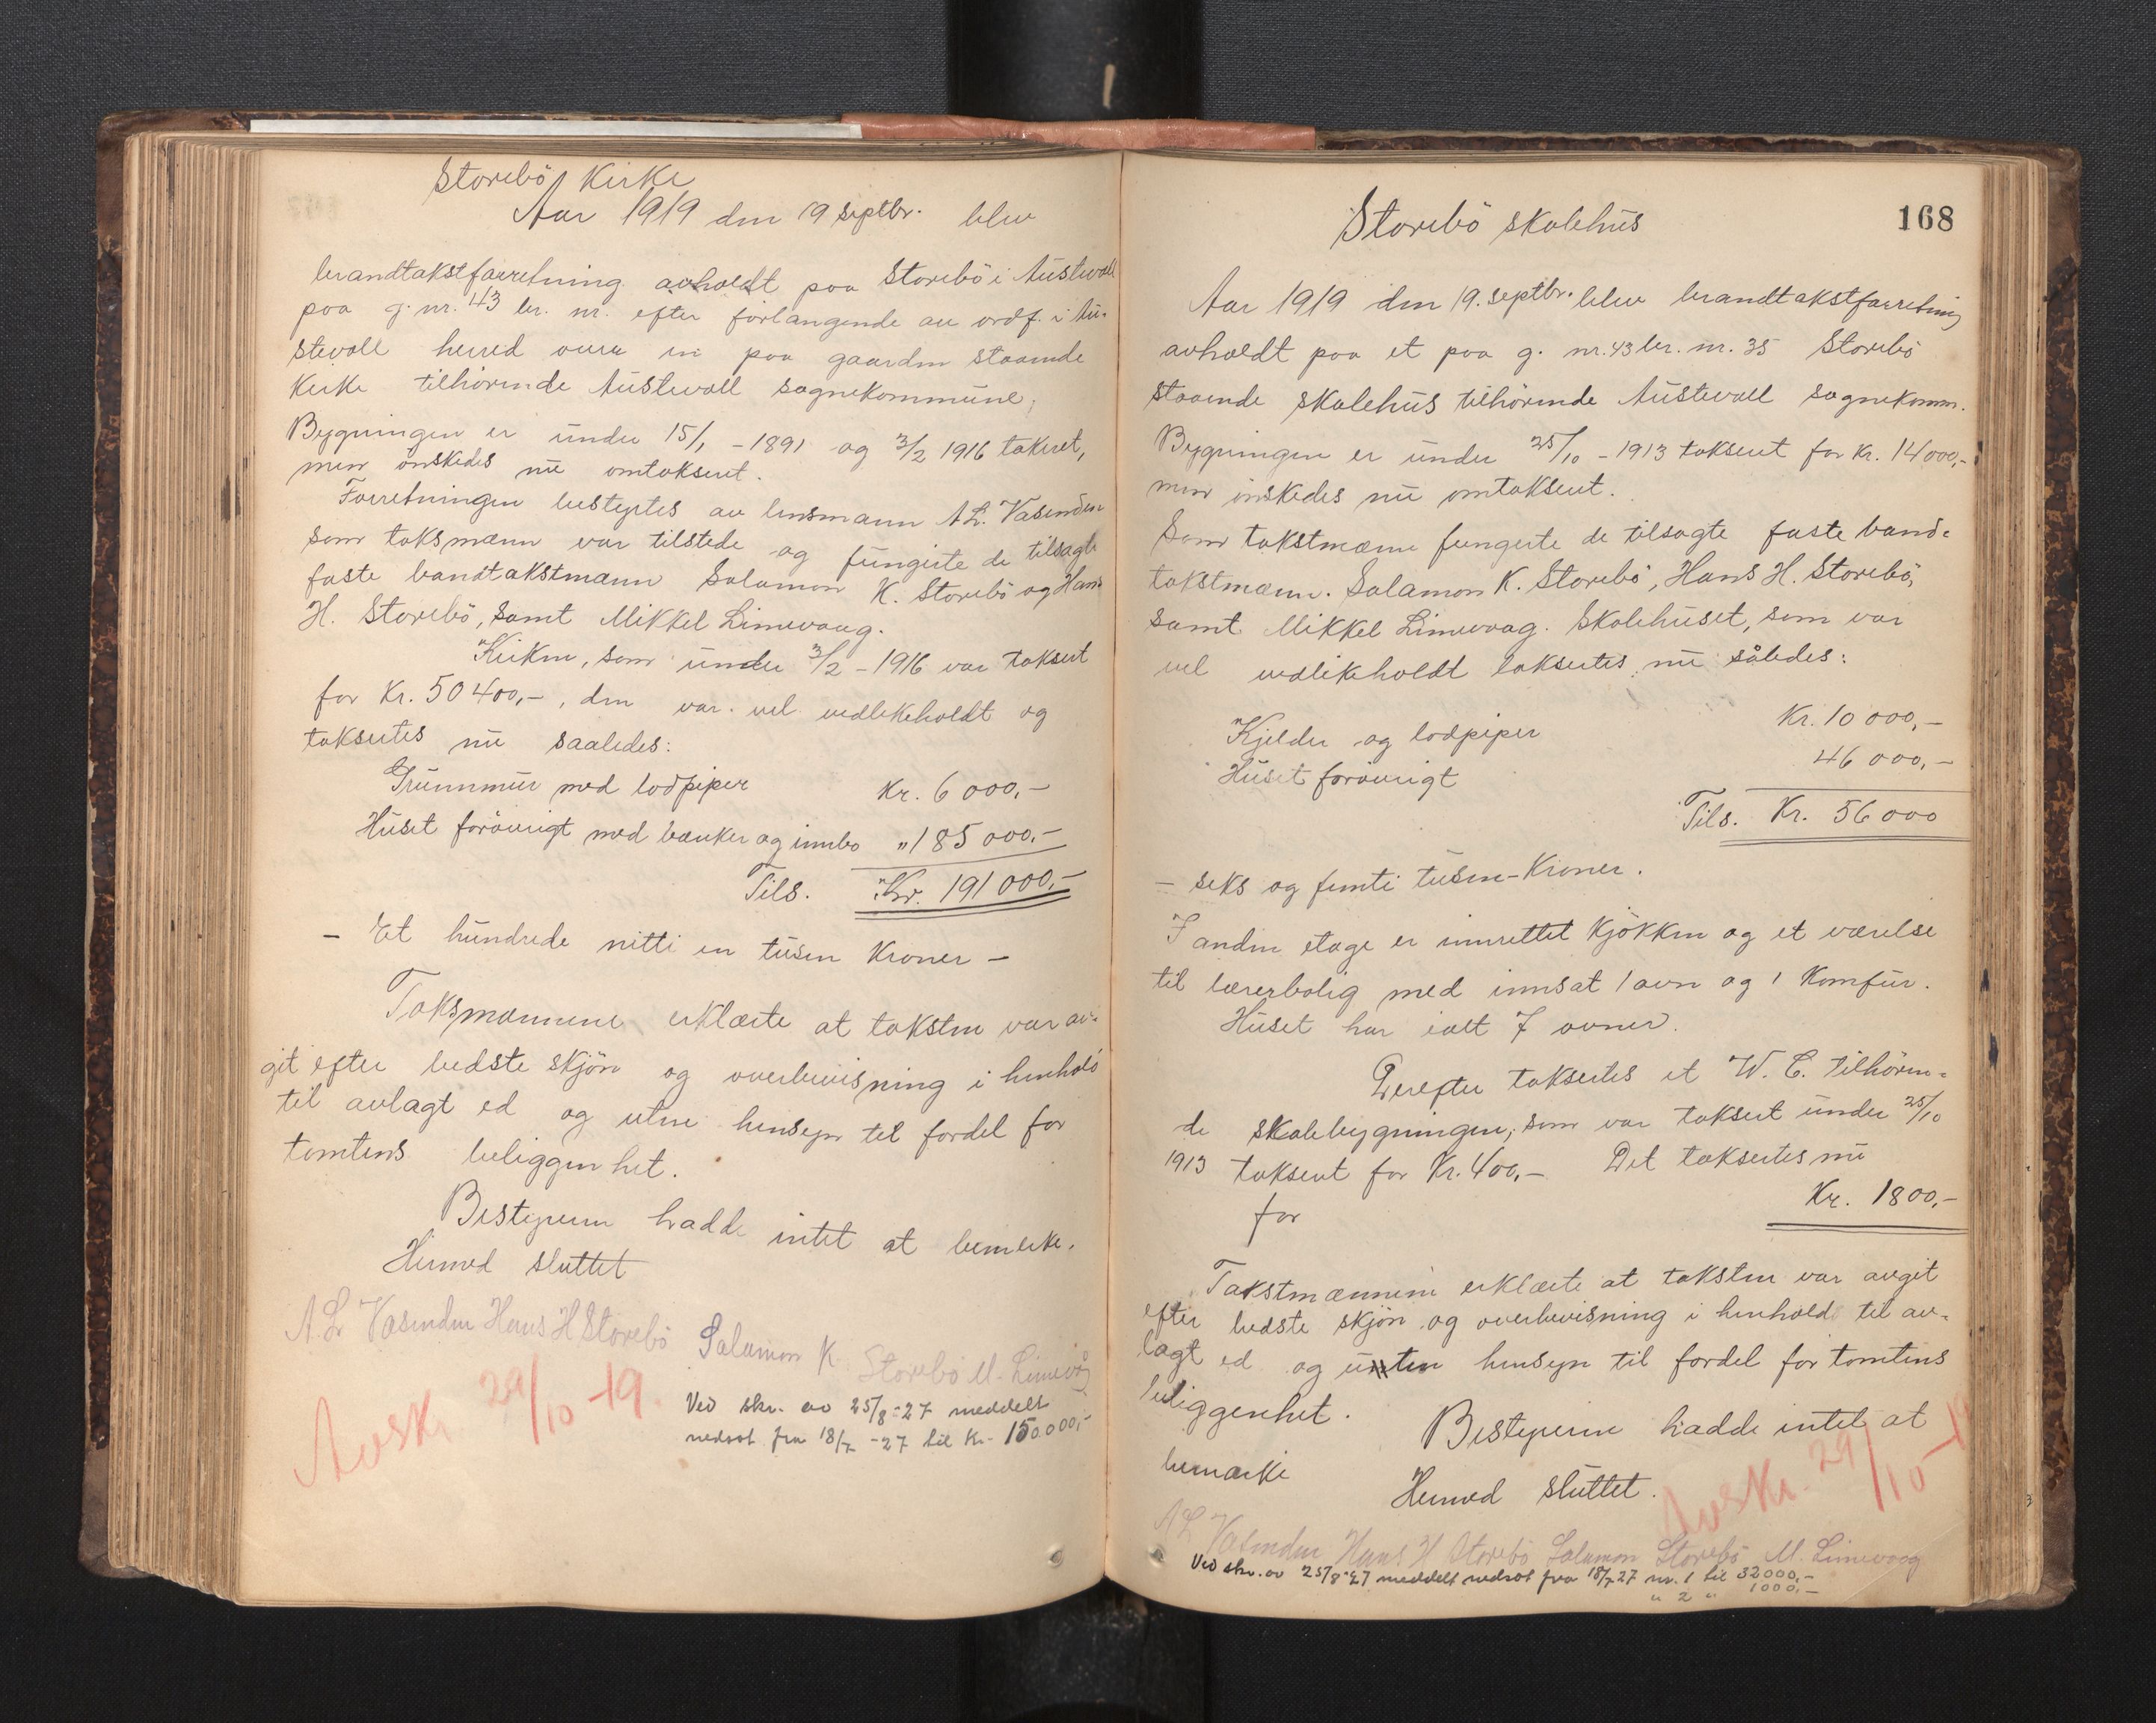 Storebö Kirke
Aar 1919 den 19 septbr. blev
brandtakstforretning avholdt paa Storebö i Austevoll
paa g. nr. 43 br. nr. efter forlangende av ordf. i Au-
stevoll herred over en paa gaarden staaende
Kirke tilhörende Austevoll sognekommune,
Bygningen er under 15/1 - 1891 og 3/2 1916 taksert,
men önskedes nu omtaksert.
Forretningen bestyrtes av lensmann A L. Vasenden
som taksmænn var tilstede og fungerte de tilsagte
faste brandtakstmænn Salamon K. Storebö og Hans
H. Storebö, samt Mikkel Linevaag.
Kirken, som under 3/2 - 1916 var taksert
for Kr. 50 400,-, den var vel vedlikeholdt og
taksertes nu saaledes:
Grunnmur med lodpiper Kr. 6 000,-
Huset forövrigt med bænker og innbo " 185 000,-
Tils. Kr. 191 000,-
- Et hundrede nitti en tusen Kroner -
Taksmænnene erklærte at taksten var av-
git efter bedste skjön og overbevisning i henhold
til avlagt ed og uten hensyn til fordel for
tomtens beliggenhet.
Bestyreren hadde intet at bemerke.
Hermed sluttet
A. L. Vasenden Hans H Storebö Salamon K. Storebö M. Linevåg
Avskr. 29/10 -19.
Ved skr. av 25/8-27 meddelt
nedsat fra 18/7 -27 til Kr. 150.000,-
168
Storebö skolehus
Aar 1919 den 19. septbr. blev brandtakstforretning
avholdt paa et paa g. nr. 43 br. nr. 35 Storebö
staaende skolehus tilhörende Austevoll sognekomm.
Bygningen er under 25/10 - 1913 taksert for Kr. 14 000,-
men önskedes nu omtaksert.
Som takstmænn fungerte de tilsagte faste band-
takstmænn. Salamon K. Storebö, Hans H. Storebö,
samt Mikkel Linevaag. Skolehuset, som var
vel vedlikeholdt taksertes nu således:
Kjelder og lodpiper Kr. 10 000,-
Huset forövrigt 46 000,-
Tils. Kr. 56 000
- seks og femti tusen-Kroner.
I anden etage er innrettet Kjökken og et værelse
til lærerbolig med innsat 1 ovn og 1 Komfur.
Huset har ialt 7 ovner.
Derefter taksertes et W. C. tilhören-
de skolebygningen, som var taksert under 25/10
1913 taksert for Kr. 400,- Det taksertes nu
for Kr. 1800,-
Takstmænnene erklærte at taksten var avgit
efter bedste skjön og overbevisning i henhold til av-
lagt ed og uten hensyn til fordel for tomtens
beliggenhet. Bestyreren hadde intet at
bemærke
Hermed sluttet.
Avskr. 29/10 -19
A L Vasenden Hans H Storebö Salamon Storebö M. Linevaag
Ved skr. av 25/8-27 meddelt nedsat fra 18/7 27 nr. 1 til 32000,-
" 2 " 1000,-